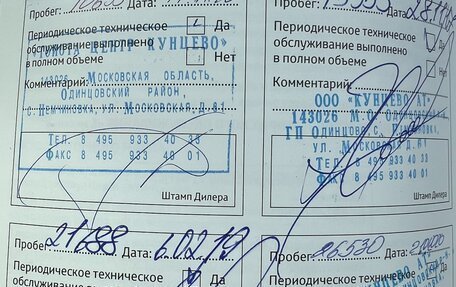 Пробег: Дата:
Периодическое техническое Да
обслуживание выполнено
в полном объеме Нет
Комментарий:
«ТОЙОТА ЦЕНТР КУНЦЕВО»
143026, МОСКОВСКАЯ ОБЛАСТЬ,
ОДИНЦОВСКИЙ РАЙОН,
С. НЕМЧИНОВКА, УЛ. МОСКОВСКАЯ, Д.61
ТЕЛ. 8 495 933 40 33
ФАКС 8 495 933 40 01
Штамп Дилера
Пробег:
Периодическое техническое Да
обслуживание выполнено
в полном объеме Нет
Комментарий:
ООО «КУНЦЕВО
143026 М.О.
ГП ОДИНЦОВО
УЛ. МОСКОВСКАЯ Д.61
ТЕЛ. 8 495 933 40 33
ФАКС 8 495 933 40 01
Штамп Дилера
Пробег: 21688 Дата: 6.02.19
Периодическое техническое Да
обслуживание выполнено
Пробег: 26530 Дата:
Периодическое техническое Да
обслуживание